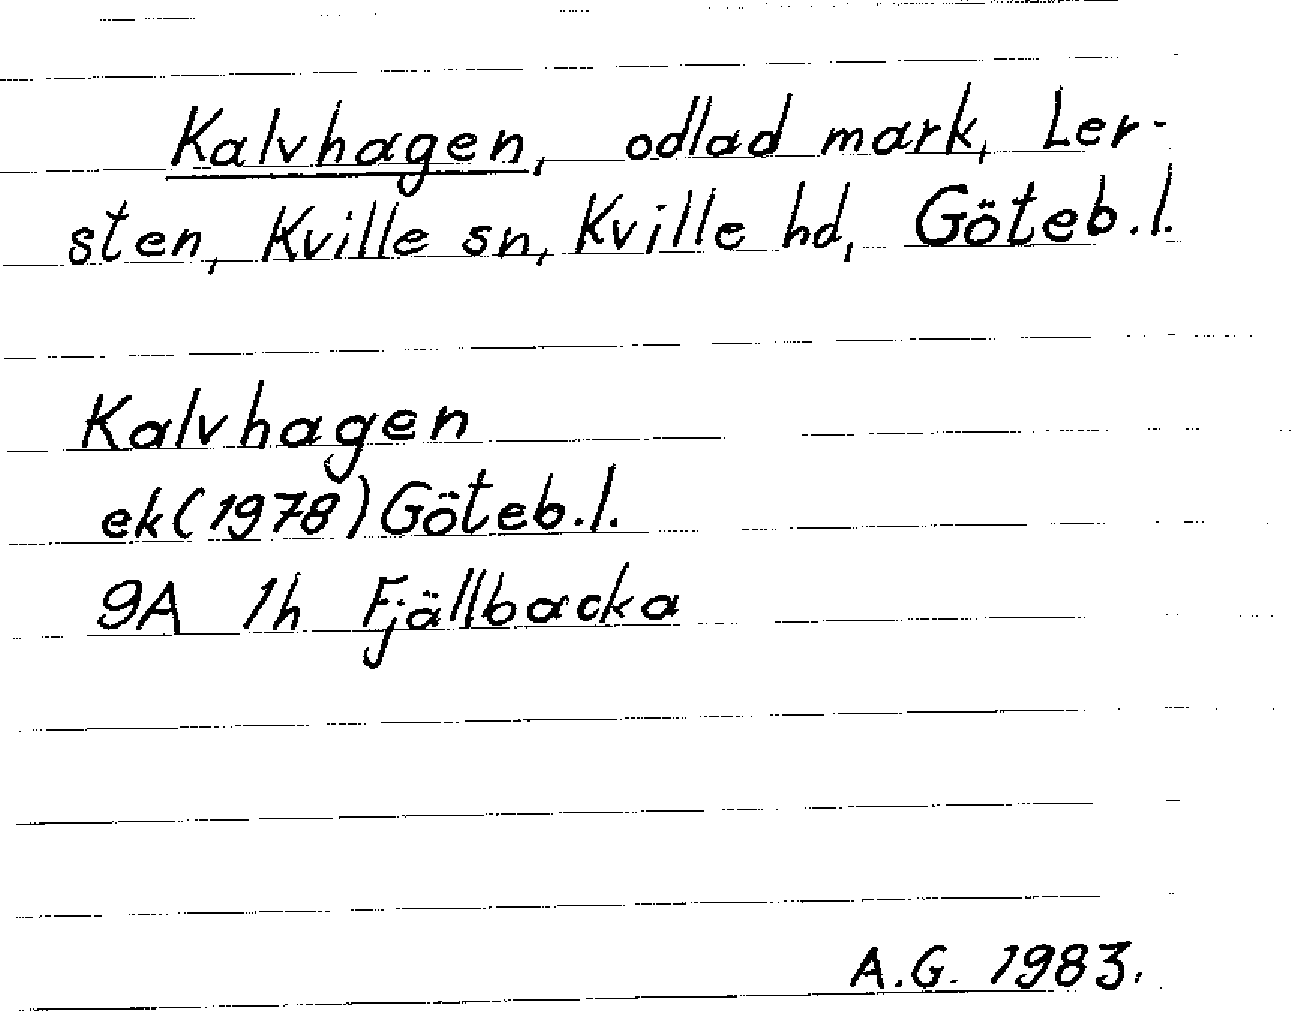 Kalvhagen, odlad mark, Ler-
sten, Kville sn, Kville hd, Göteb.l.
Kalvhagen
ek(1978) Göteb.l.
9A 1h Fjällbacka
A.G. 1983.